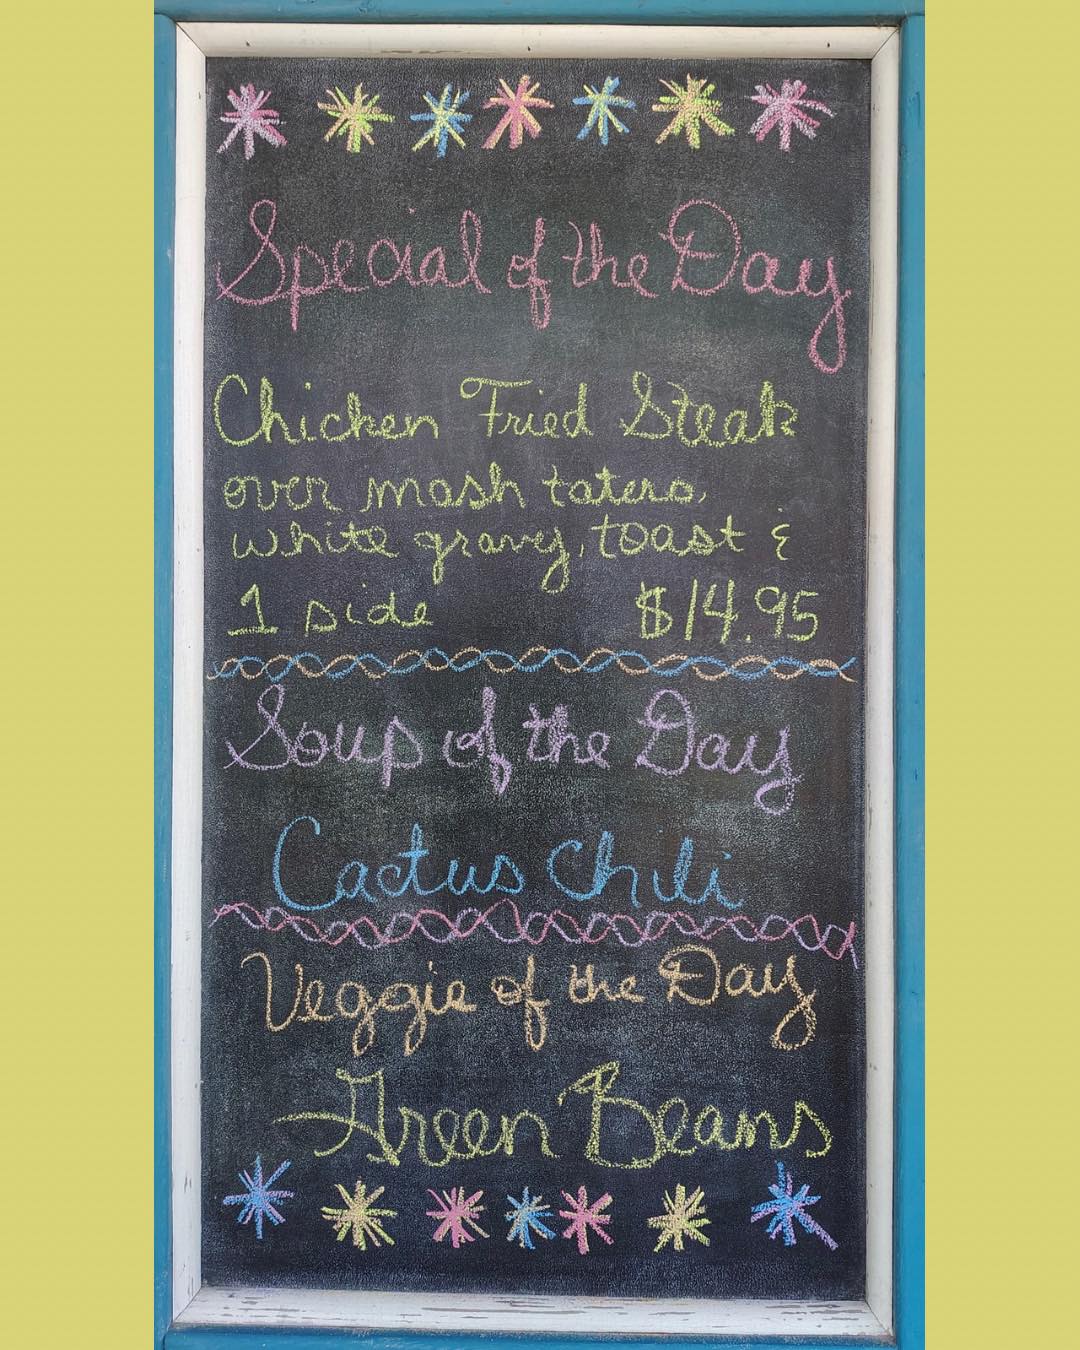 Special of the Day
Chicken Fried Steak
over mash taters,
white gravy, toast &
1 side $14.95
Soup of the Day
Cactus Chili
Veggie of the Day
Green Beans